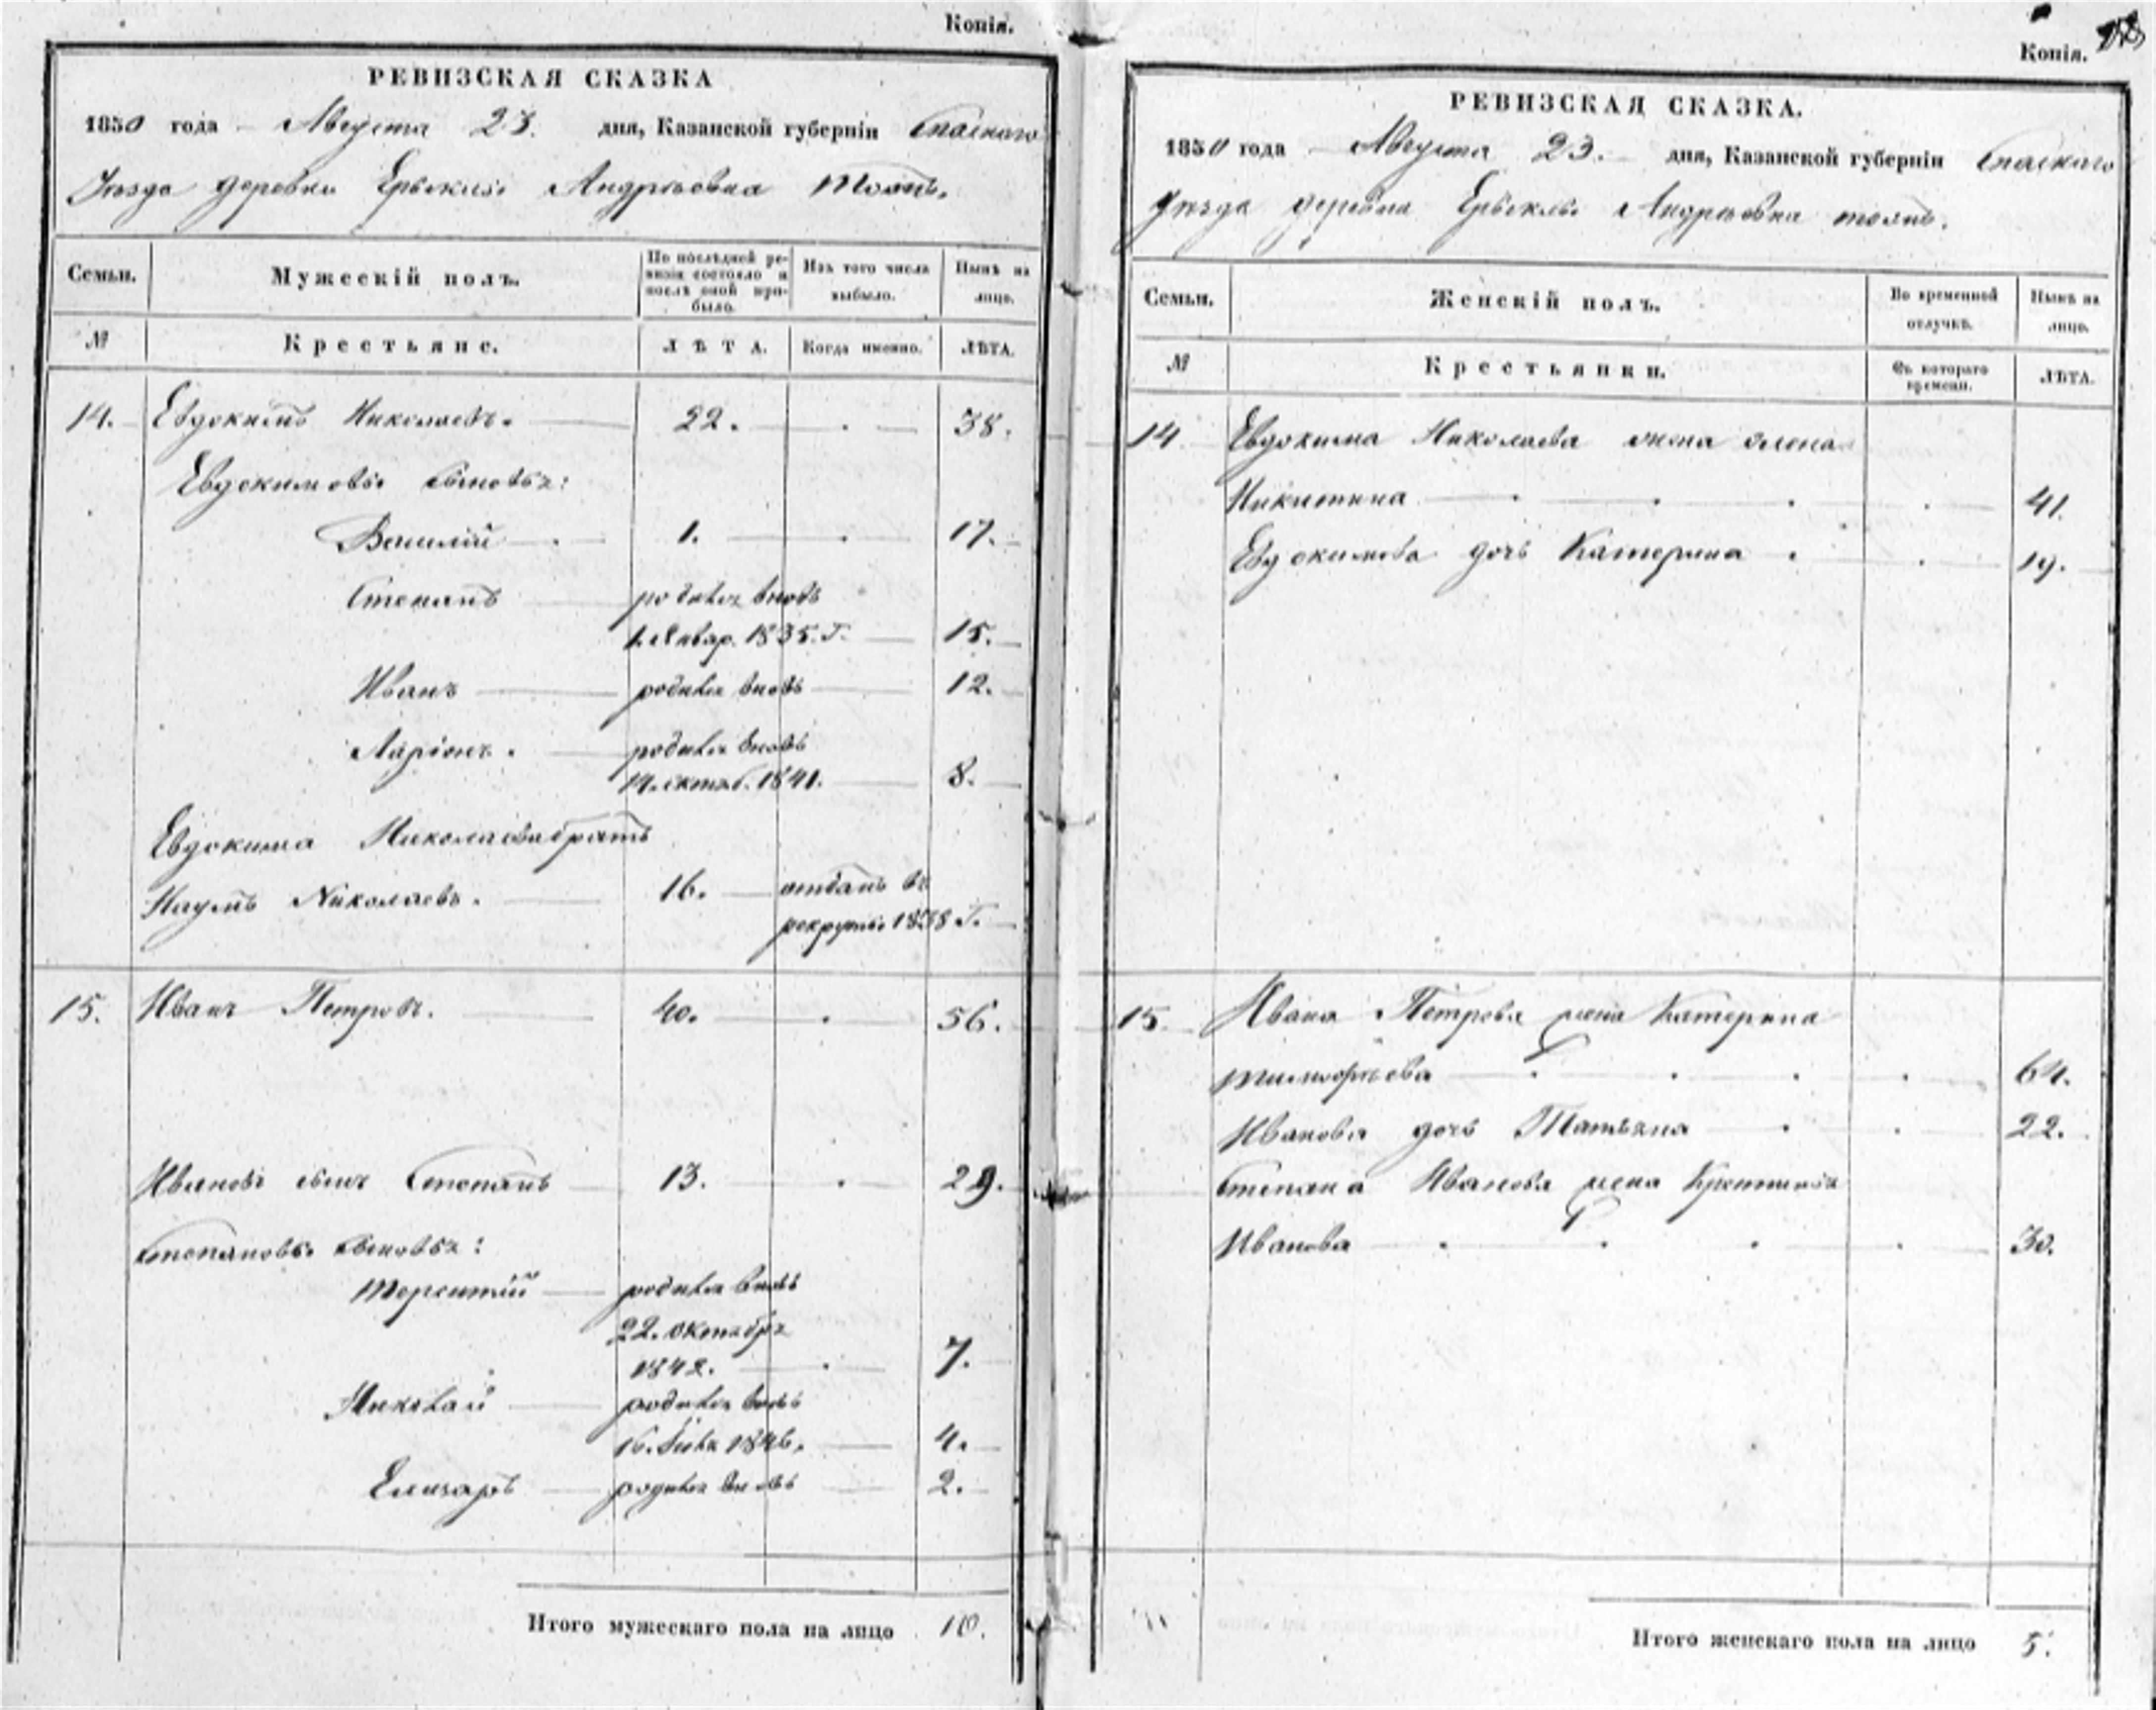 Копія.
РЕВИЗСКАЯ СКАЗКА
1850 года Августа 23. дня, Казанской губерніи Спаскаго
Уѣзда деревни Ерыклы Андрѣевка тожъ.
Семьи. Мужескій полъ. По послѣдней ревизіи состояло и послѣ оной прибыло. Изъ того числа выбыло. Нынѣ на лицо.
№ Крестьяне. ЛѢТА. Когда именно. ЛѢТА.
14. Евдокимъ Николаевъ. 22. 38.
Евдокимовы сыновья:
Василій 1. 17.
Степанъ родился вновь
1. Январ. 1835. Г. 15.
Иванъ родился вновь 12.
Ларіонъ. родился вновь
14. октяб. 1841. 8.
Евдокима Николаева братъ
Наумъ Николаевъ. 16. отданъ въ
рекруты 1838 Г.
15. Иванъ Петровъ. 40. 56.
Ивановъ сынъ Степанъ 13. 29.
Степановы сыновья:
Терентій родился вновь
22. октября
1842. 7.
Николай родился вновь
16. 1846. 4.
Елизаръ родился вновь 2.
Итого мужескаго пола на лицо 10.
Копія.
РЕВИЗСКАЯ СКАЗКА.
1850 года Августа 23. дня, Казанской губерніи Спаскаго
Уѣзда деревни Ерыклы Андрѣевка тожъ.
Семьи. Женскій полъ. Во временной отлучкѣ. Нынѣ на лицо.
№ Крестьянки. Съ котораго времени. ЛѢТА.
14 Евдокима Николаева жена Елена
Никитина 41.
Евдокимова дочь Катерина 19.
15. Ивана Петрова жена Катерина
Тимофѣева 64.
Иванова дочь Татьяна 22.
Степана Иванова жена
Иванова 30.
Итого женскаго пола на лицо 5.